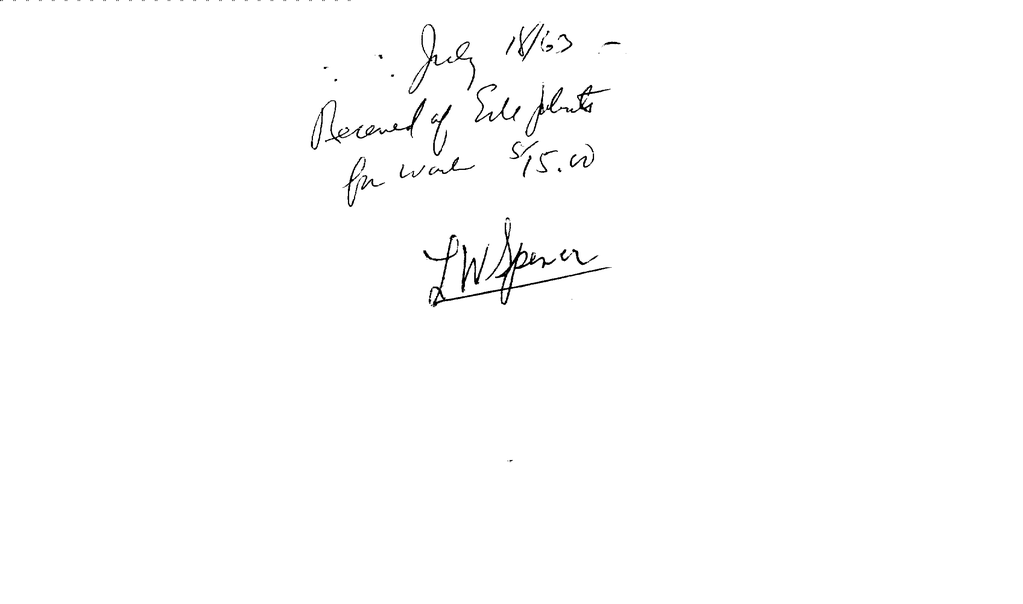 July 18/63 -
Received of Erle Johnston
for work $15.00
L W Spencer